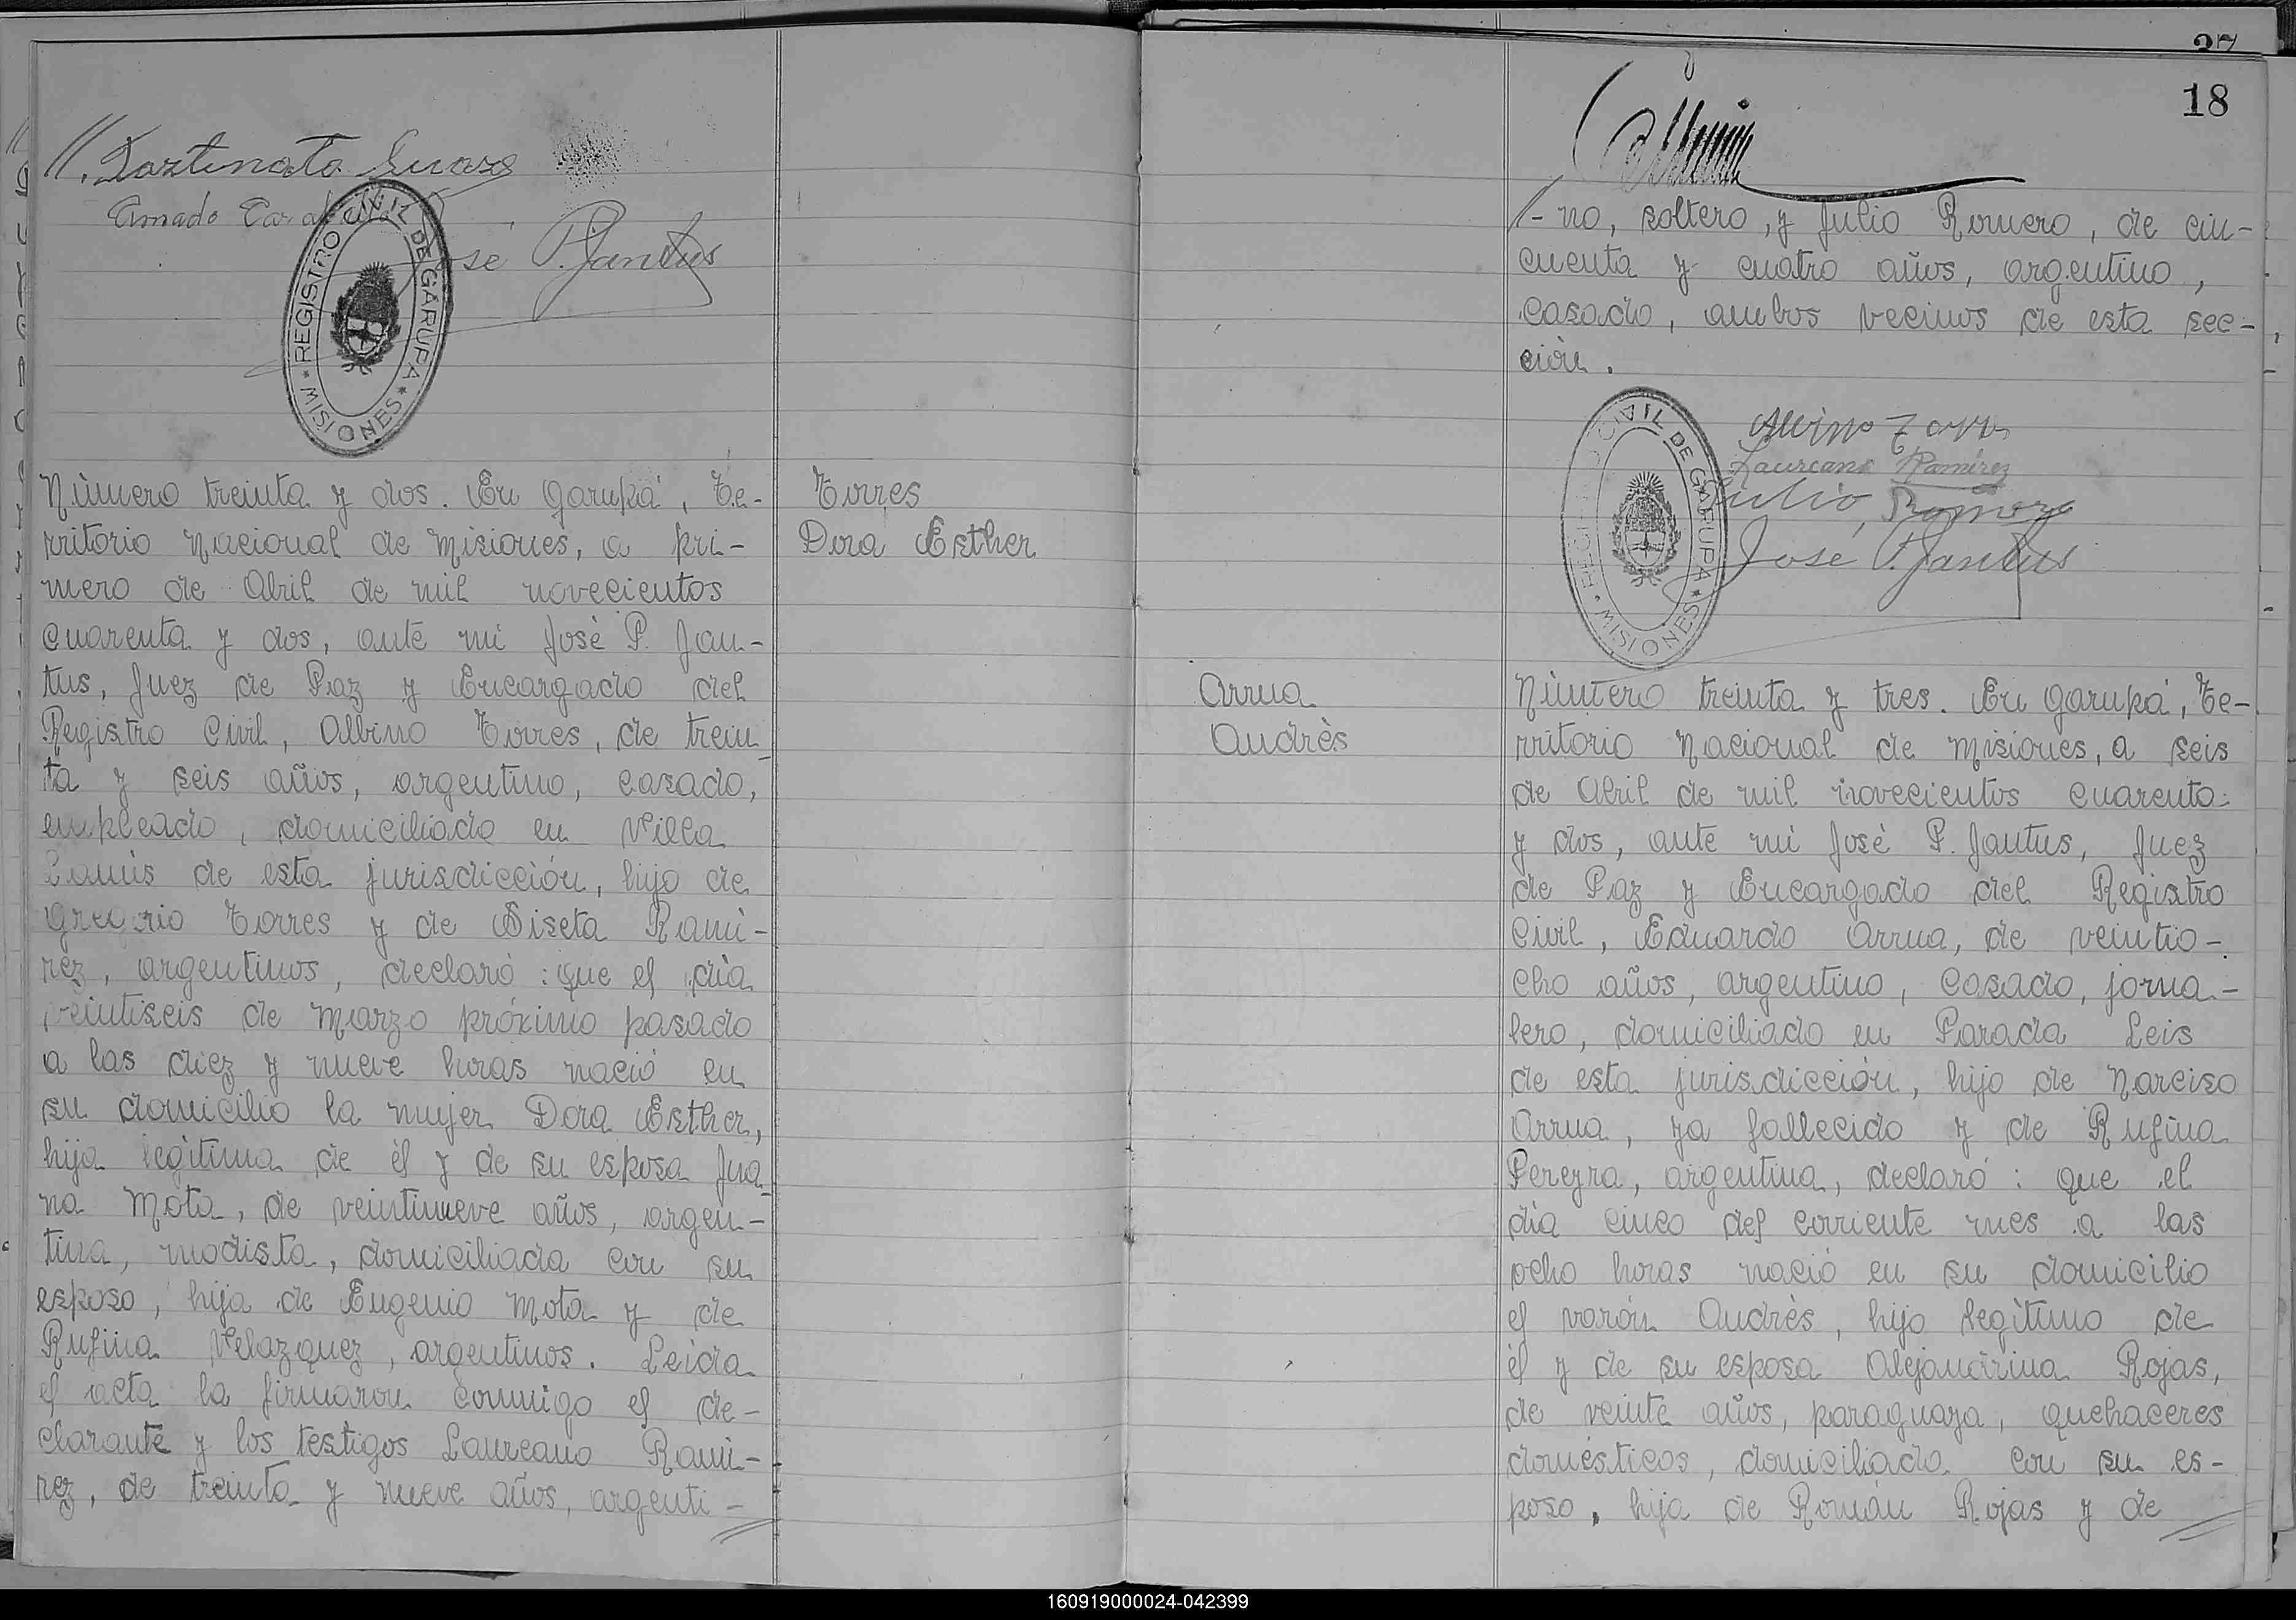 //. Fortunato Suarez
Amado
José P. Jantus
REGISTRO CIVIL DE GARUPA
* MISIONES *
Número treinta y dos. En Garupá, Te-
rritorio Nacional de Misiones, a pri-
mero de Abril de mil novecientos
cuarenta y dos, ante mi José P. Jan-
tus, Juez de Paz y Encargado del
Registro Civil, Albino Torres, de trein_
ta y seis años, argentino, casado,
empleado, domiciliado en Villa
Lanús de esta jurisdicción, hijo de
Gregorio Torres y de Siseta Ramí-
rez, argentinos, declaró: que el día
veintiseis de Marzo próximo pasado
a las diez y nueve horas nació en
su domicilio la mujer Dora Esther,
hija legítima de él y de su esposa Jua_
na Mota, de veintinueve años, argen-
tina, modista, domiciliada con su
esposo, hija de Eugenio Mota y de
Rufina Velazquez, argentinos. Leida
el acta la firmaron conmigo el de-
clarante y los testigos Laureano Ramí-
rez, de treinta y nueve años, argenti-
Torres
Dora Esther
37
18
//-no, soltero, y Julio Romero, de cin-
cuenta y cuatro años, argentino,
casado, ambos vecinos de esta sec-
ción.
CIVIL DE GARUPA
* MISIONES *
Albino Torres
Laureano Ramírez
Julio Romero
José P. Jantus
Arrua
Andrès
Número treinta y tres. En Garupá, Te-
rritorio Nacional de Misiones, a seis
de Abril de mil novecientos cuarenta
y dos, ante mi José P. Jantus, Juez
de Paz y Encargado del Registro
Civil, Eduardo Arrua, de veintio-
cho años, argentino, casado, jorna-
lero, domiciliado en Parada Leis
de esta jurisdicción, hijo de Narciso
Arrua, ya fallecido y de Rufina
Pereyra, argentina, declaró: que el
día cinco del corriente mes a las
ocho horas nació en su domicilio
el varón Andrès, hijo legítimo de
él y de su esposa Alejandrina Rojas,
de veinte años, paraguaya, quehaceres
domésticos, domiciliada con su es-
poso, hija de Román Rojas y de
160919000024-042399